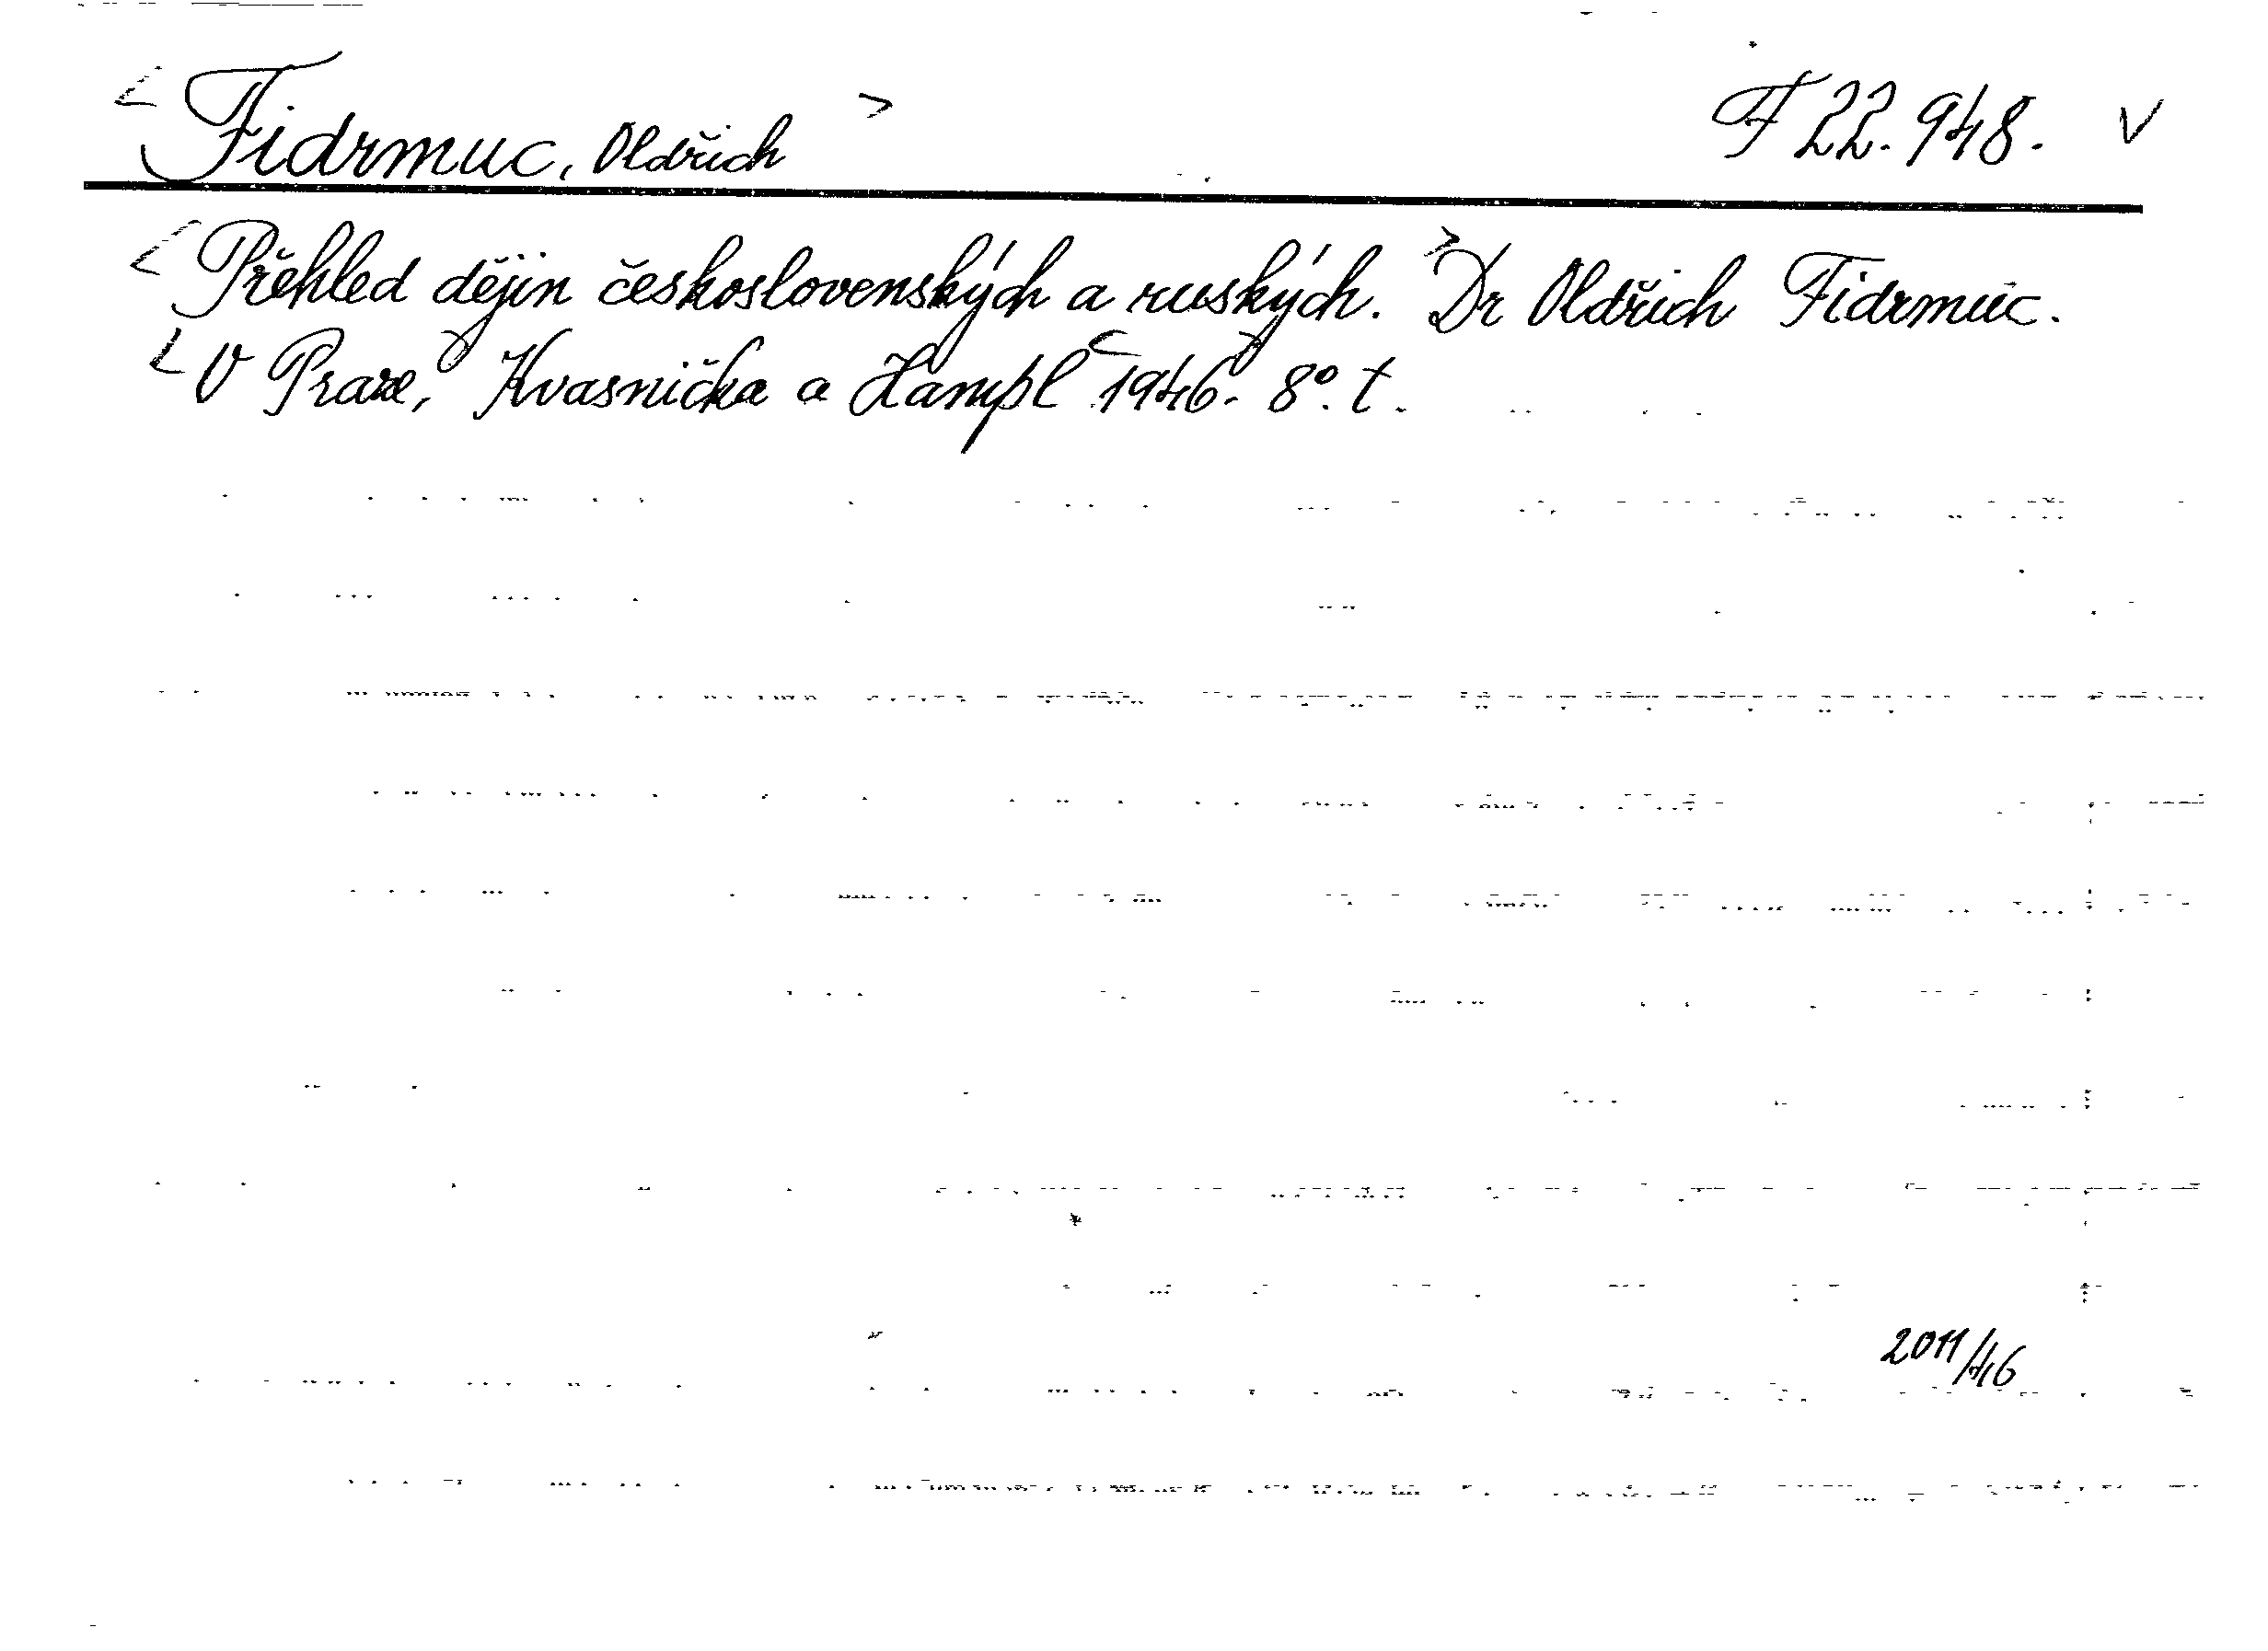 < Fidrmuc, Oldřich > F 22.948. V
< Přehled dějin československých a ruských. > Dr Oldřich Fidrmuc.
< V Praze, Kvasnička a Hampl < 1946. > 8°. t.
2011/46